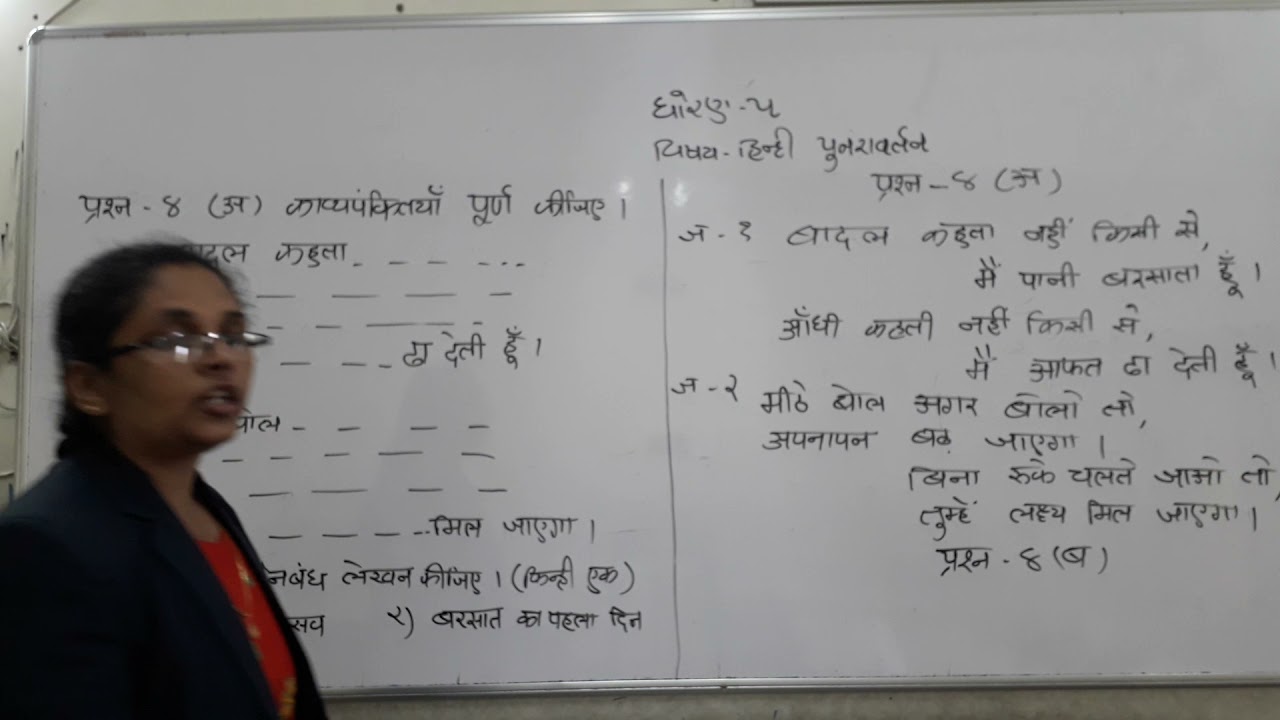 धोरण - ५
विषय - हिन्दी पुनरावर्तन
प्रश्न - ४ (अ) काव्यपंक्तियाँ पूर्ण कीजिए ।
कहता - - - - ...
— — — —
— — — —
— — — ढा देती हूँ ।
बोल - - - - -
— — — — — —
— — — —
— — — - - मिल जाएगा ।
लेखन कीजिए । (किन्ही एक)
२) बरसात का पहला दिन
प्रश्न - ४ (अ)
ज - १ बादल कहता नहीं किसी से,
मैं पानी बरसाता हूँ ।
आँधी कहती नहीं किसी से,
मैं आफत ढा देती हूँ ।
ज - २ मीठे बोल अगर बोलो तो,
अपनापन बढ़ जाएगा ।
बिना रुके चलते जाओ तो,
तुम्हें लक्ष्य मिल जाएगा ।
प्रश्न - ४ (ब)